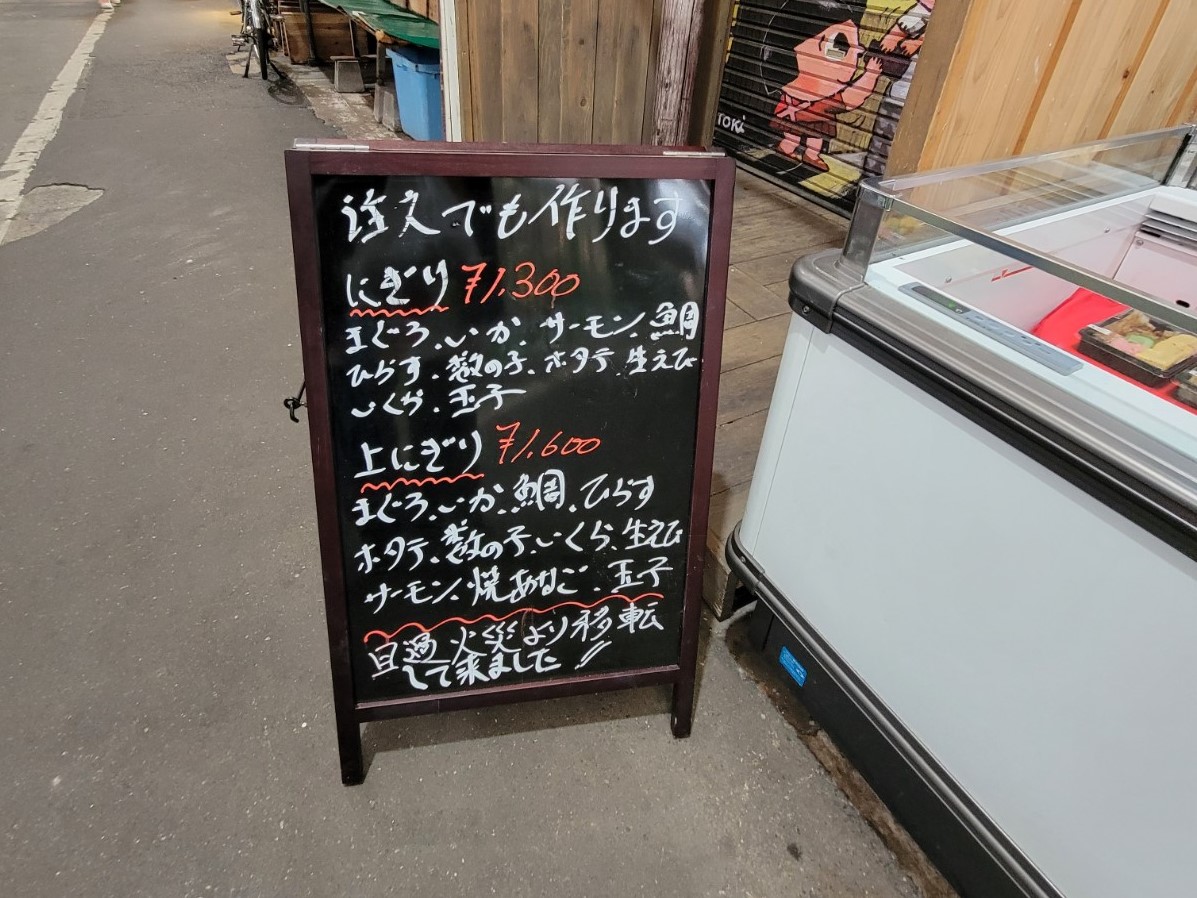 注文でも作ります
にぎり ¥1,300
まぐろ、いか、サーモン、鯛
ひらす、数の子、ホタテ、生えび
いくら、玉子
上にぎり ¥1,600
まぐろ、いか、鯛、ひらす
ホタテ、数の子、いくら、生えび
サーモン、焼あなご、玉子
旦過火災より移転
して来ました
TOKI